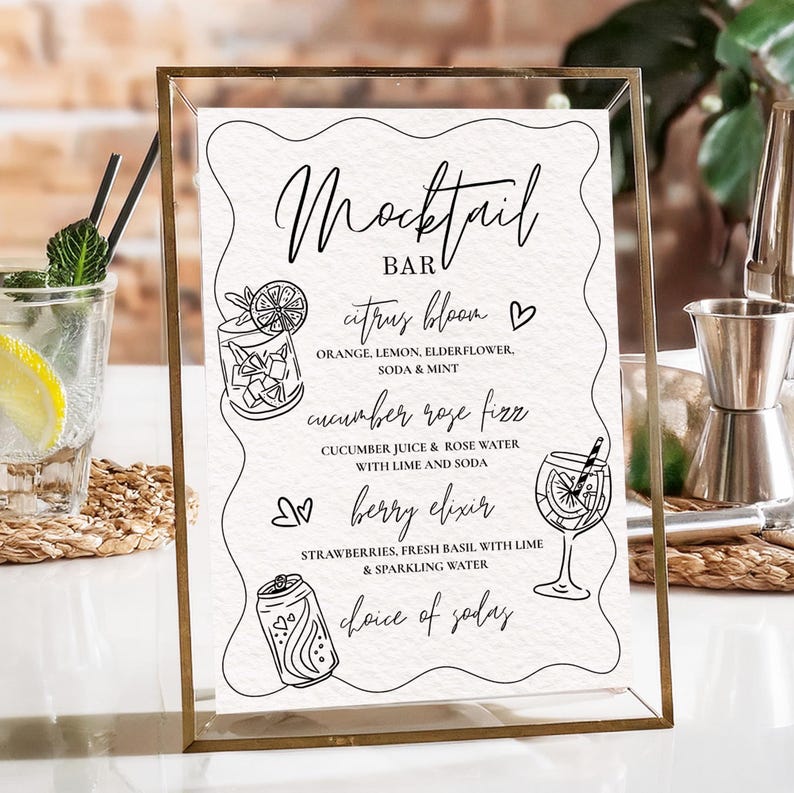 Mocktail
BAR
citrus bloom
ORANGE, LEMON, ELDERFLOWER,
SODA & MINT
cucumber rose fizz
CUCUMBER JUICE & ROSE WATER
WITH LIME AND SODA
berry elixir
STRAWBERRIES, FRESH BASIL WITH LIME
& SPARKLING WATER
choice of sodas